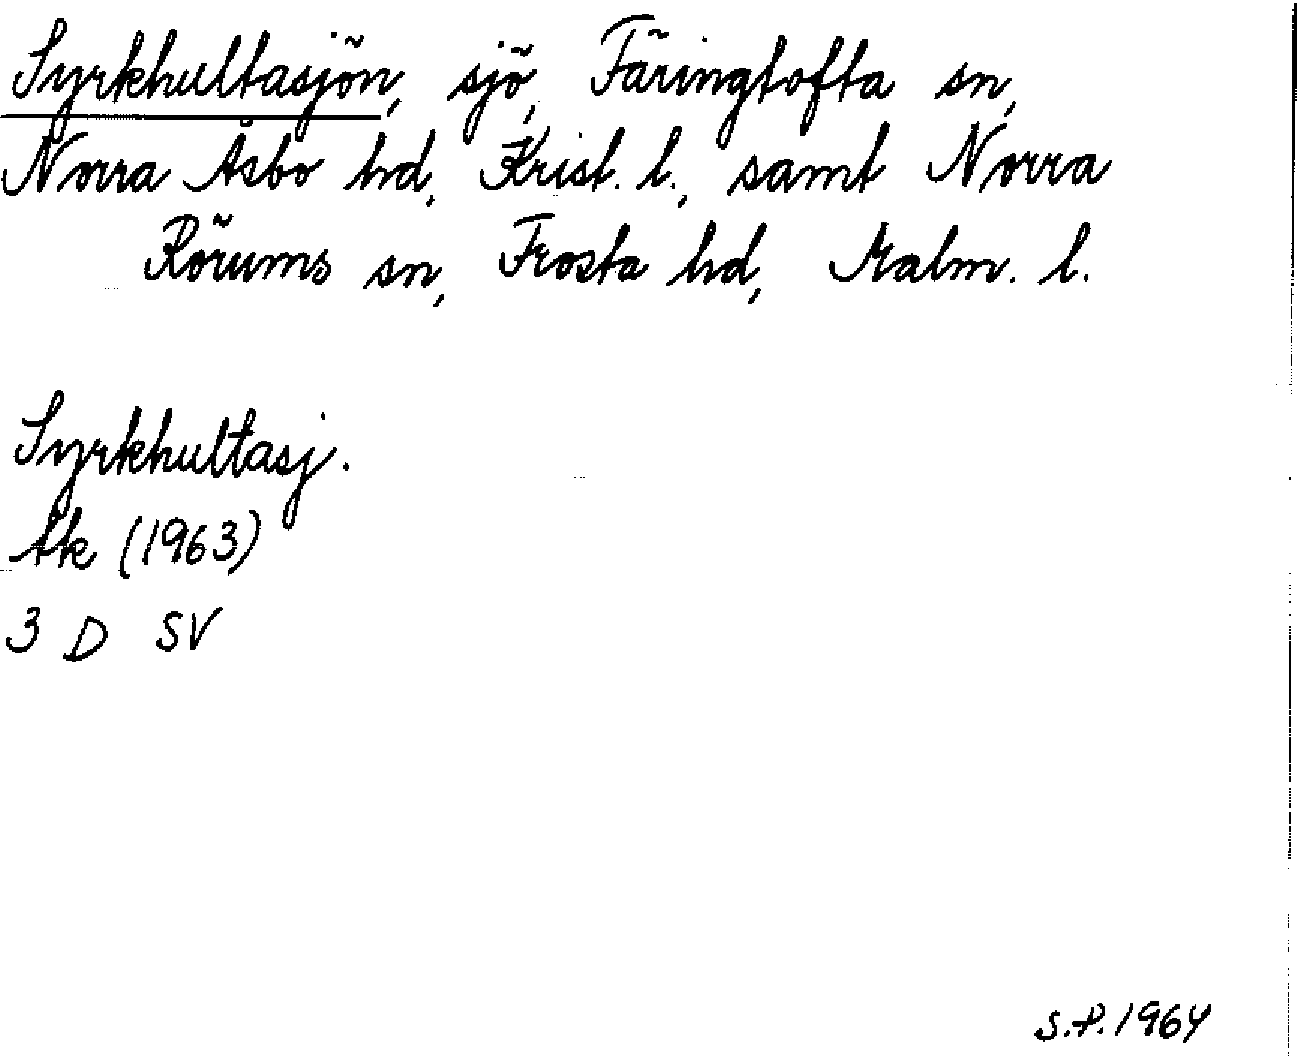 Syrkhultasjön, sjö, Färingtofta sn,
Norra Åsbo hd, Krist. l., samt Norra
Rörums sn, Frosta hd, Malm. l.
Syrkhultasj.
Ak (1963)
3 D SV
S.P. 1964